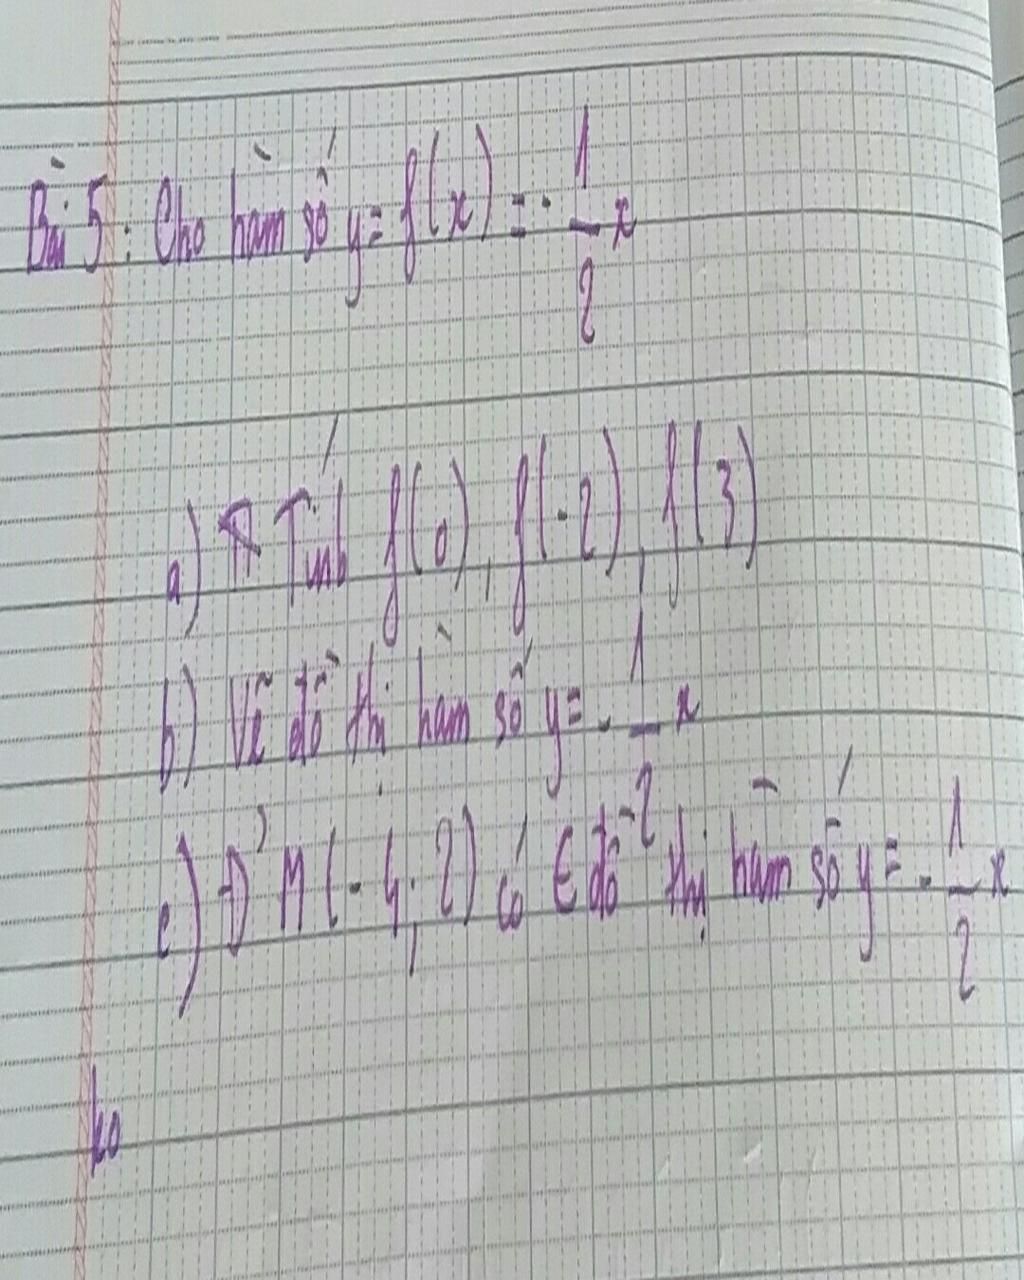 Bài 5: Cho hàm số y = f(x) = -1/2 x
a) Tính f(0), f(-2), f(3)
b) Vẽ đồ thị hàm số y = -1/2 x
c) Đ' M(-4; 2) có ∈ đồ thị hàm số y = -1/2 x
ko